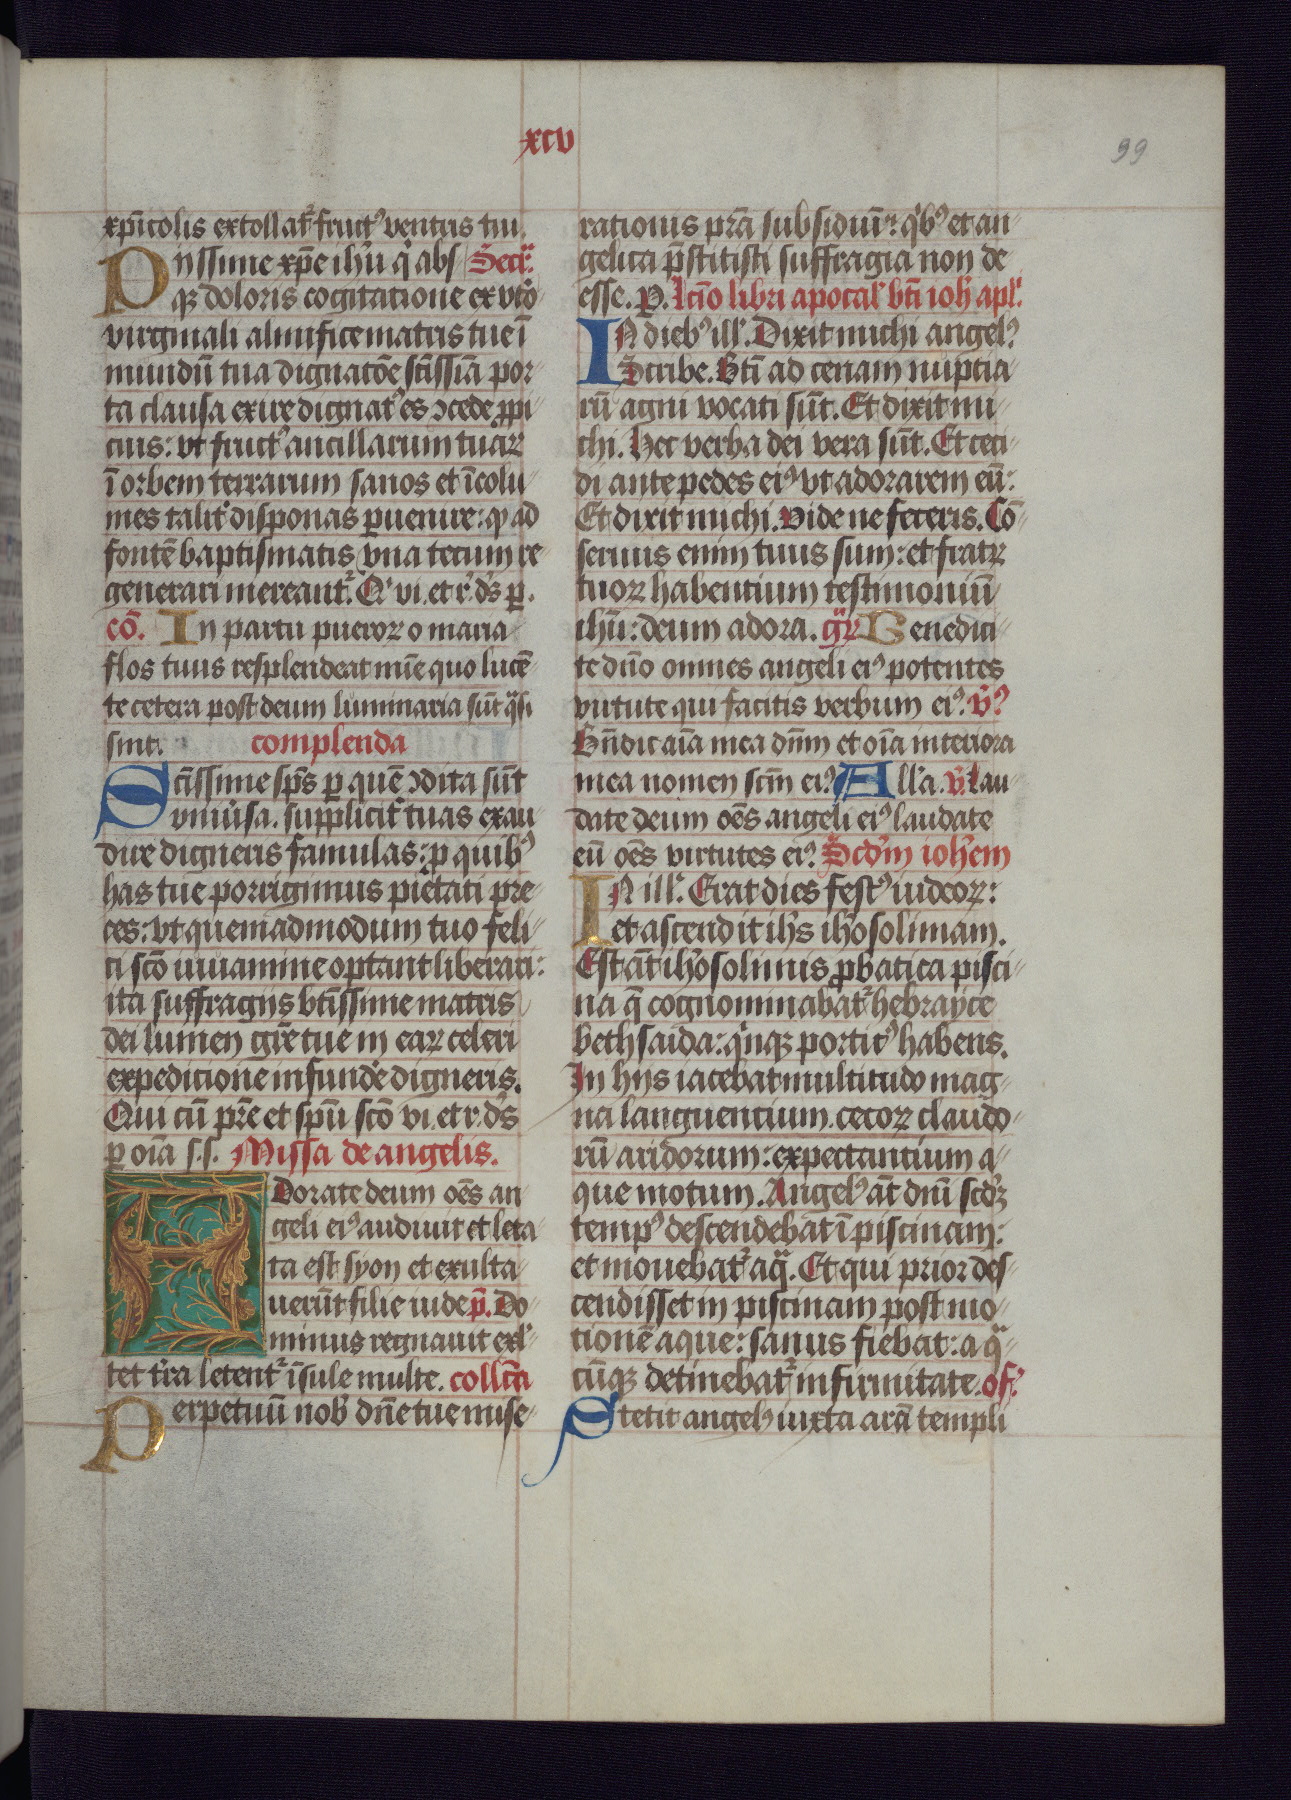 xcv
99
xp̄icolis extollat᷑ fruct᷒ ventris tui.
Pijssime xp̄e ihū q abs Secr̄.
qꝫ doloris cogitatione ex vtō
virginali almifice matris tue ī
mundū tua dignatōe sc̄issiā por
ta clausa exire dignat᷒ es ꝯcede ꝓpi
cius: vt fruct᷒ ancillarum tuaꝝ
ī orbem terrarum sanos et īcolu
mes talit᷑ disponas ꝑuenire: ꝙ ad
fontē baptismatis vna tecum re
generari mereant᷑. Q vi. et r. ds ꝑ.
cō. In partu pueroꝝ o maria
flos tuus resplendeat mīe quo lucē
te cetera post deum luminaria sūt q̄si
sint. complenda
Sc̄issime sp̄s ꝑ quē ꝯdita sūt
vniūsa. supplicit᷑ tuas exau
dire digneris famulas: ꝓ quib᷒
has tue porrigimus pietati pre
ces: vt quemadmodum tuo feli
ci sc̄o iuuamine optant liberari:
ita suffragijs bt̄issime matris
dei lumen gr̄e tue in eaꝝ celeri
expeditione infundē digneris.
Qui cū pr̄e et spū sc̄o vi. et r. ds
ꝑ oīa s.s. Missa de angelis.
Adorate deum oēs an
geli ei᷒ audiuit et leta
ta est syon et exulta
uerūt filie iude p̄. Do
minus regnauit exl
tet t̄ra letent᷑ īsule multe. coll̄ca
Perpetuū nob dn̄e tue mise
rationis pr̄a subsidiū: qb᷒ et an
gelica p̄stitisti suffragia non de
esse. ꝑ. lc̄io libri apocal bt̄i ioh apl.
In dieb᷒ ill. Dixit michi angel᷒
Scribe. Bt̄i ad cenam nuptia
rū agni vocati sūt. Et dixit mi
chi. Hec verba dei vera sūt. Et ceci
di ante pedes ei᷒ vt adorarem eū:
Et dixit michi. Vide ne feceris. Cō
seruus enim tuus sum: et fratꝝ
tuoꝝ habentium testimoniū
ihū: deum adora. gr̄ Benedici
te dn̄o omnes angeli ei᷒ potentes
virtute qui facitis verbum ei᷒. v᷒
Bn̄dic aīa mea dn̄m et oīa interiora
mea nomen scm̄ ei᷒ Alla. v. Lau
date deum oēs angeli ei᷒ laudate
eū oēs virtutes ei᷒. Scdm iohem
In ill. Erat dies fest᷒ iudeoꝝ:
et ascendit ihs ihosolimam.
Est āt ihosolimis ꝓbatica pisci
na q̄ cognominabat᷑ hebrayce
bethsaida: qnqꝫ portic᷒ habens.
In hijs iacebat multitudo mag
na languentium. cecoꝝ claudo
rū aridorum: expectantium a
que motum. Angel᷒ āt dn̄i scdꝫ
temp᷒ descendebat ī piscinam:
et mouebat᷑ aq̄. Et qui prior des
cendisset in piscinam post mo
tionē aque: sanus fiebat: a q̄
cūqꝫ detinebat᷑ infirmitate. of.
Stetit angel᷒ iuxta arā templi